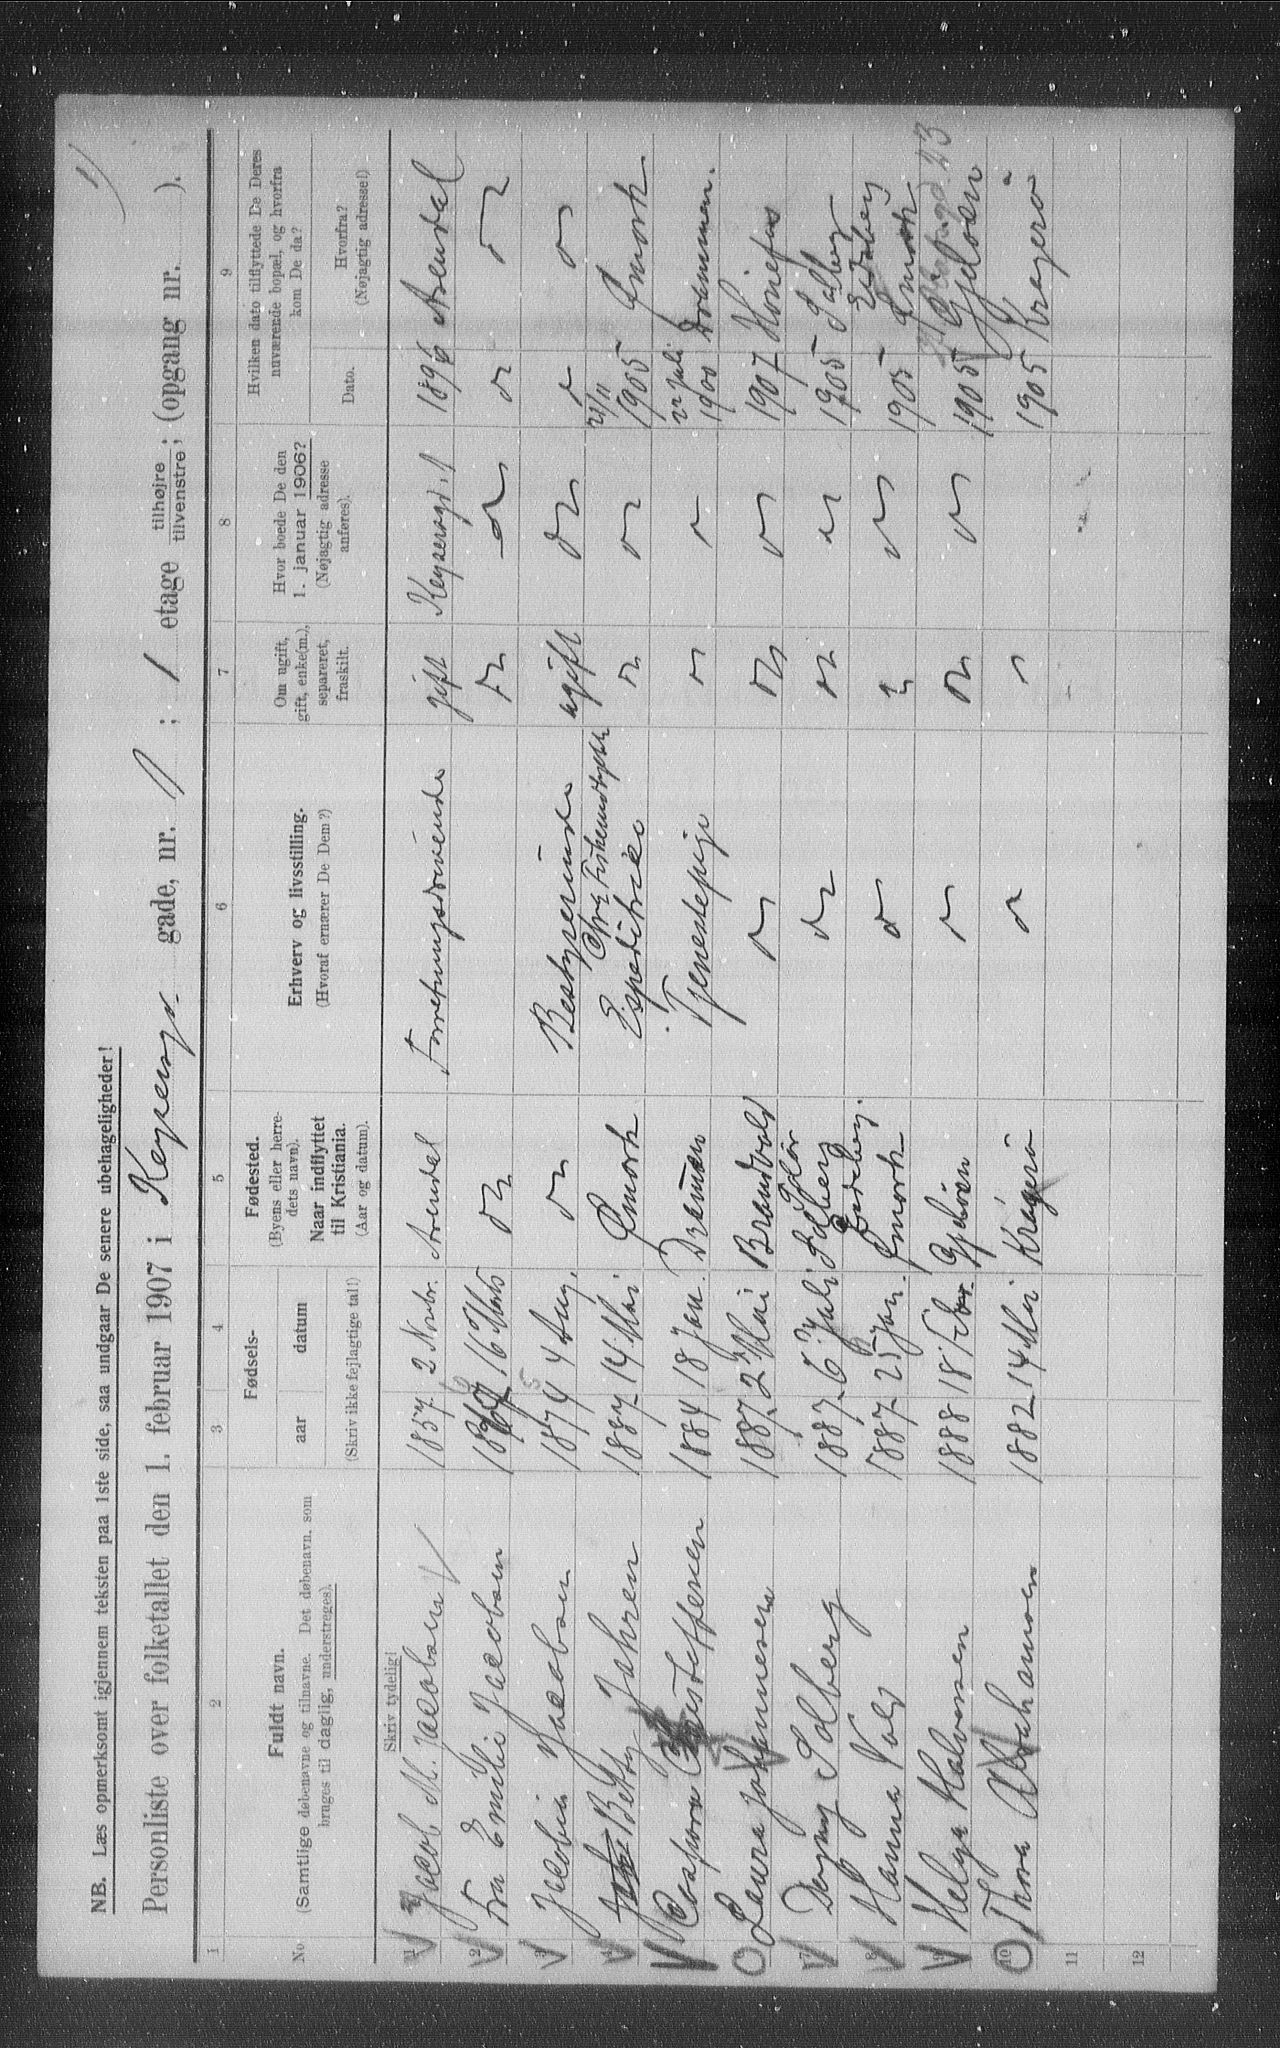 NB. Læs opmerksomt igjennem teksten paa 1ste side, saa undgaar De senere ubehageligheder!
Personliste over folketallet den 1. februar 1907 i Keysersgt gade, nr. 1 ; 1 etage tilhøjre/tilvenstre; (opgang nr. ).
1 2 3 4 5 6 7 8 9
No. Fuldt navn. (Samtlige døbenavne og tilnavne. Det døbenavn, som bruges til daglig, understreges).
Fødsels- aar datum (Skriv ikke fejlagtige tal!)
Fødested. (Byens eller herredets navn). Naar indflyttet til Kristiania. (Aar og datum).
Erhverv og livsstilling. (Hvoraf ernærer De Dem?)
Om ugift, gift, enke(m.), separeret, fraskilt.
Hvor boede De den 1. januar 1906? (Nøjagtig adresse anføres).
Hvilken dato tilflyttede De Deres nuværende bopæl, og hvorfra kom De da?
Dato. Hvorfra? (Nøjagtig adresse!)
Skriv tydelig!
1 Jacob M. Jacobsen 1857 2 Novbr. Arendal Forretningsdrivende gift Keysersgt. 1 1896 Arendal
2 Fru Emilie Jacobsen 16 Marts do do do do do
3 Jacobin Jacobsen 1874 4 Aug. do Bestyrerinde ugift do do do
4 Betty Jahren 1887 14 Mai Ømork Expeditrice do do 21/11 1905 Ømork
5 Caspara Christoffersen 1884 18 Jan. Drammen Tjenestepige do do 22 Juli 1900 Drammen.
6 Laura Johannesen 1887 2 Mai Brandvold do do do 1907 Hønefos
7 Dagny Solberg 1887 6 Juli Solberg Eidsberg do do do 1905 Solberg Eidsberg
8 Hanna Vold 1887 25 Jan. Ømork do do do 1905 Ømork
9 Helga Halvorsen 1888 18 Febr. Gjøvik do do do 1905
10 Thora Abrahamsen 1882 14 Mai Kragerø do do 1905 Kragerø
11
12